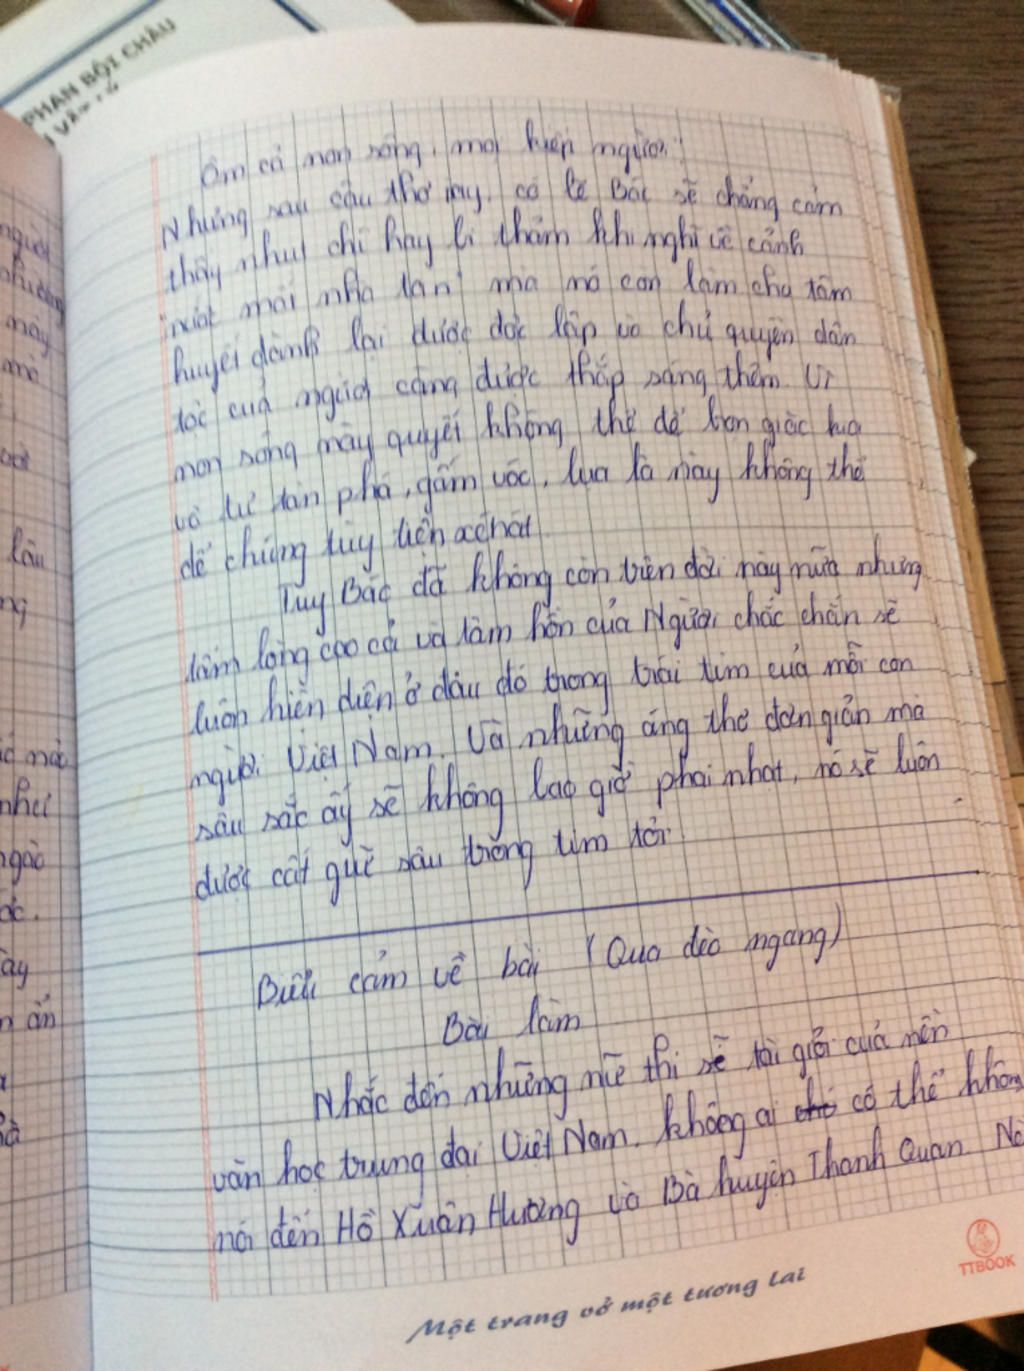 PHAN BỘI CHÂU
Ôm cả non sông, mọi kiếp người"
Nhưng sau câu thơ này, có lẽ Bác sẽ chẳng cảm
thấy nhụt chí hay bi thảm khi nghĩ về cảnh
"nước mất nhà tan" mà nó còn làm cho tâm
huyết dành lại được độc lập và chủ quyền dân
tộc của người càng được thắp sáng thêm. Vì
non sông này quyết không thể để bọn giặc
vô tư tàn phá, gấm vóc, lụa là này không thể
để chúng tùy tiện xé nát.
Tuy Bác đã không còn trên đời này nữa nhưng
tấm lòng cao cả và tâm hồn của Người chắc chắn sẽ
luôn hiện diện ở đâu đó trong trái tim của mỗi con
người Việt Nam. Và những áng thơ đơn giản mà
sâu sắc ấy sẽ không bao giờ phai nhạt, nó sẽ luôn
được cất giữ sâu trong tim tôi.
Biểu cảm về bài (Qua đèo ngang)
Bài làm
Nhắc đến những nữ thi sĩ tài giỏi của nền
văn học trung đại Việt Nam, không ai có thể không
nói đến Hồ Xuân Hương và Bà huyện Thanh Quan. Nế
Một trang vở một tương lai
TTBOOK